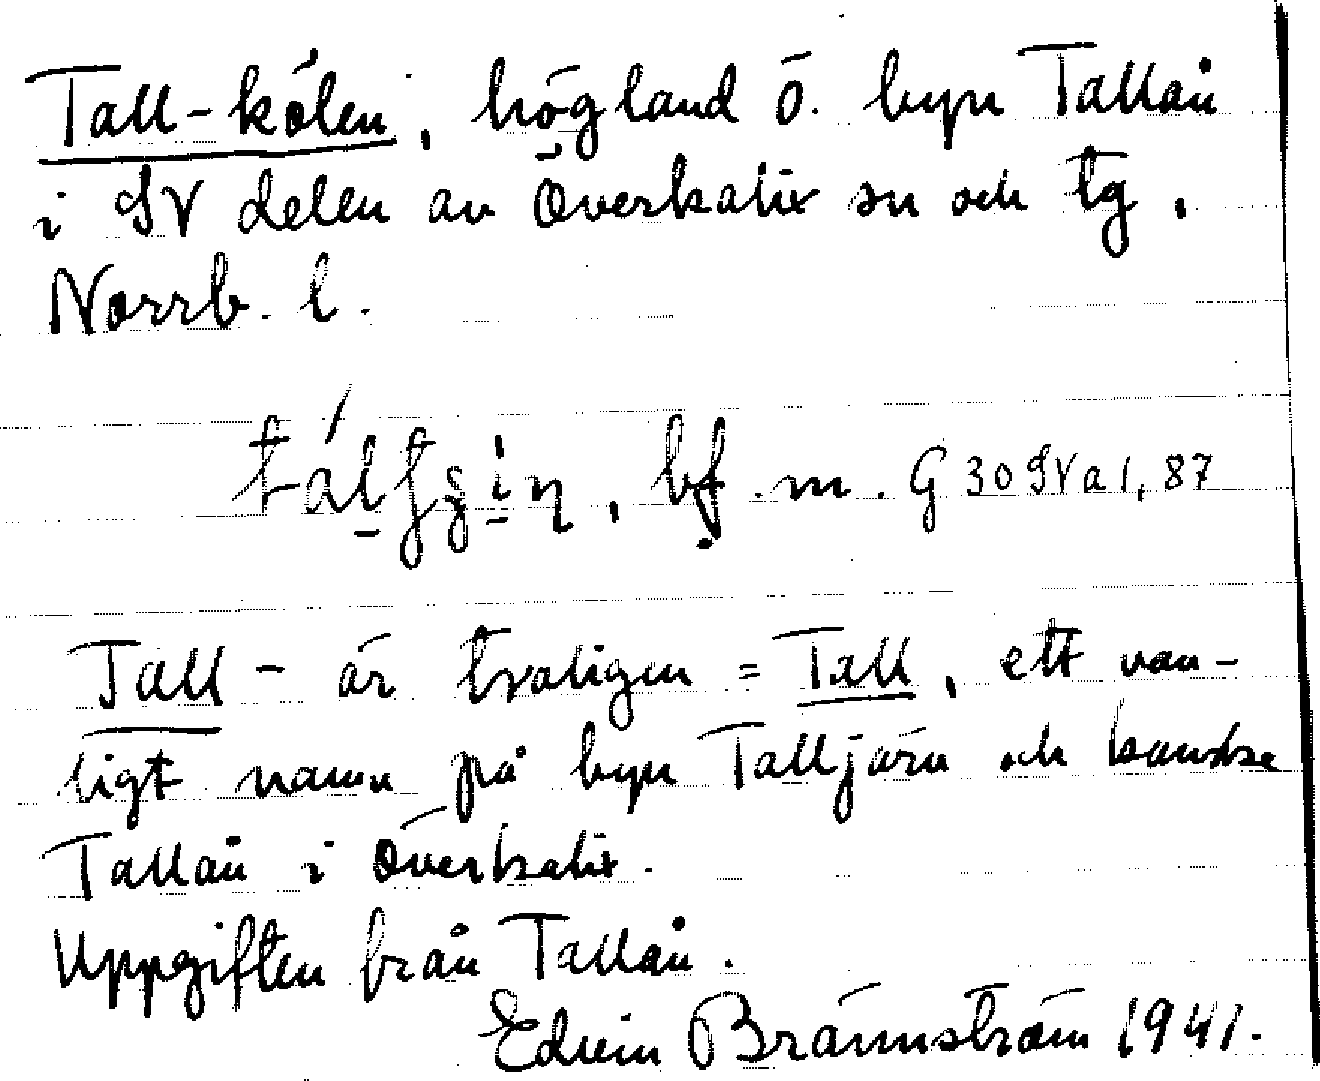 Tall-kölen, högland ö. byn Tallån
i SV delen av Överkalix sn och tg,
Norrb. l.
bf. m. G 30 SV a 1, 87
Tall- är troligen = Tall, ett van-
ligt namn på byn Talljärn och kanske
Tallån i Överkalix.
Uppgiften från Tallån.
Edvin Brännström 1941.